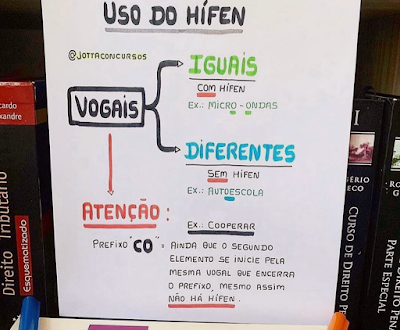 USO DO HÍFEN
@JOTTACONCURSOS
VOGAIS
IGUAIS
COM HÍFEN
EX.: MICRO-ONDAS
DIFERENTES
SEM HÍFEN
EX.: AUTOESCOLA
ATENÇÃO:
EX.: COOPERAR
PREFIXO "CO" = AINDA QUE O SEGUNDO
ELEMENTO SE INICIE PELA
MESMA VOGAL QUE ENCERRA
O PREFIXO, MESMO ASSIM
NÃO HÁ HÍFEN.
Direito Tributário
Esquematizado
CURSO DE DIREITO PENAL
PARTE ESPECIAL